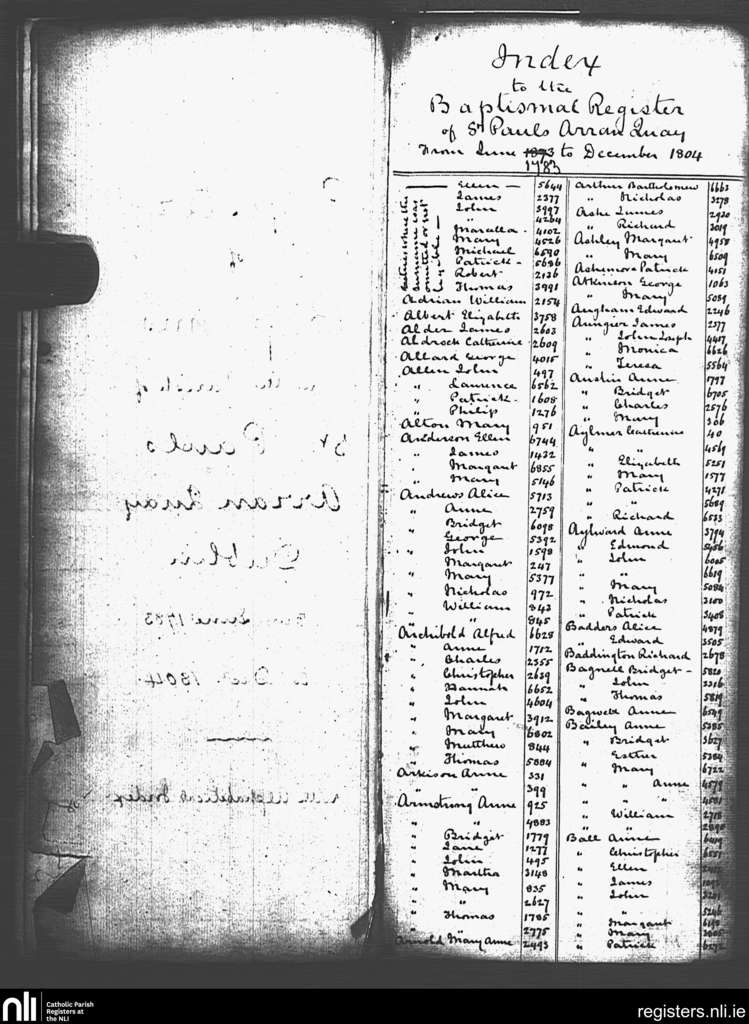 Index
to the
Baptismal Register
of St Pauls Arran Quay
From June 1873 to December 1804
1783
Entries where the
surname was
omitted or not
legible —
—— Ellen — 5644
James 2377
John 3997
" 4264
Marcella - 4102
Mary 4526
Michael 6590
Patrick - 5686
Robert 2136
Thomas 3991
Adrian William 2154
Albert Elizabeth 3758
Alder James 2603
Aldrock Catherine 2609
Allard George 4015
Allen John 497
" Laurence 6562
" Patrick - 1608
" Philip 1276
Alton Mary 951
Anderson Ellen 6744
" James 1432
" Margaret 6855
" Mary 5146
Andrews Alice 5713
" Anne 2759
" Bridget 6098
" George 5392
" John 1598
" Margaret 247
" Mary 5377
" Nicholas 972
" William 843
" " 845
Archibold Alfred 6628
" Anne 1712
" Charles 2355
" Christopher 2639
" Hannah 6652
" John 4604
" Margaret 3912
" Mary 6802
" Matthew 844
" Thomas 5884
Arkison Anne 331
" " 399
Armstrong Anne 925
" " 4883
" Bridget 1779
" Jane 1277
" John 495
" Martha 3148
" Mary 835
" " 2627
" Thomas 1785
" " 2775
Arnold Mary Anne 2493
Arthur Bartholomew 6663
" Nicholas 3278
Ashe James 2920
" Richard 3019
Ashley Margaret 4958
" Mary 6509
Ashmore Patrick 4151
Atkinson George 1063
" Mary 5039
Aungham Edward 2246
Aungier James 2377
" John Joseph 4407
" Monica 6626
" Teresa 5564
Austin Anne 1797
" Bridget 6705
" Charles 2576
" Mary 306
Aylmer Catherine 40
" " 4569
" Elizabeth 5251
" Mary 1577
" Patrick 4271
" " 5689
" Richard 6533
Aylward Anne 3794
" Edmond 5456
" John 6005
" " 6619
" Mary 5084
" Nicholas 3100
" Patrick 3408
Badders Alice 4879
" Edward 3505
Baddington Richard 2678
Bagnell Bridget - 5820
" John 3316
" Thomas 5819
Bagwell Anne 6549
Bailey Anne 5285
" Bridget 3627
" Esther 5284
" Mary 6722
" " Anne 4579
" " " 4581
" William 2718
" " 2890
Ball Anne 6419
" Christopher 6551
" Ellen
" James
" John
" " 5246
" Margaret 6198
" Mary 3805
" Patrick 6272
NLI
Catholic Parish
Registers at
the NLI
registers.nli.ie